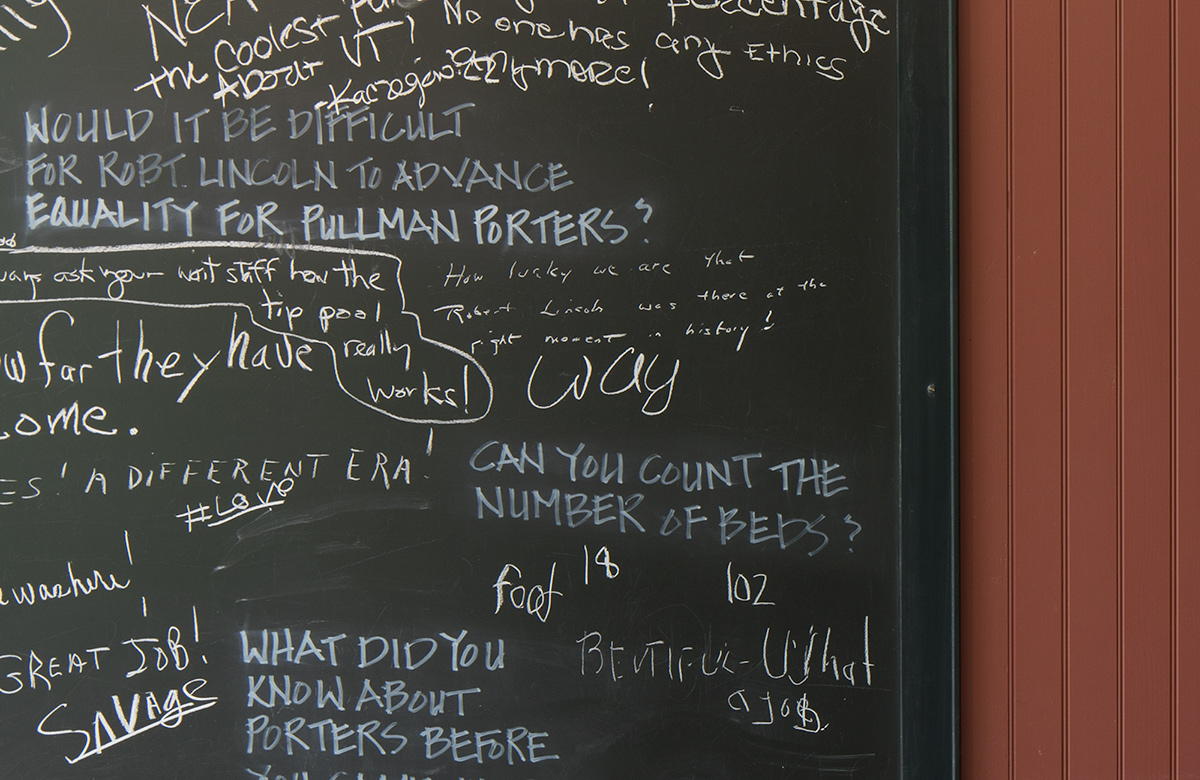 the Coolest
About VT!
No one has any Ethics
anymore!
WOULD IT BE DIFFICULT
FOR ROBT. LINCOLN TO ADVANCE
EQUALITY FOR PULLMAN PORTERS?
ask your wait staff how the
tip pool
really
works!
How lucky we are that
Robert Lincoln was there at the
right moment in history!
far they have
way
A DIFFERENT ERA!
#LOVE
CAN YOU COUNT THE
NUMBER OF BEDS?
18
102
GREAT JOB!
SAVAGE
WHAT DID YOU
KNOW ABOUT
PORTERS BEFORE
BEUTIFUL - What
a job